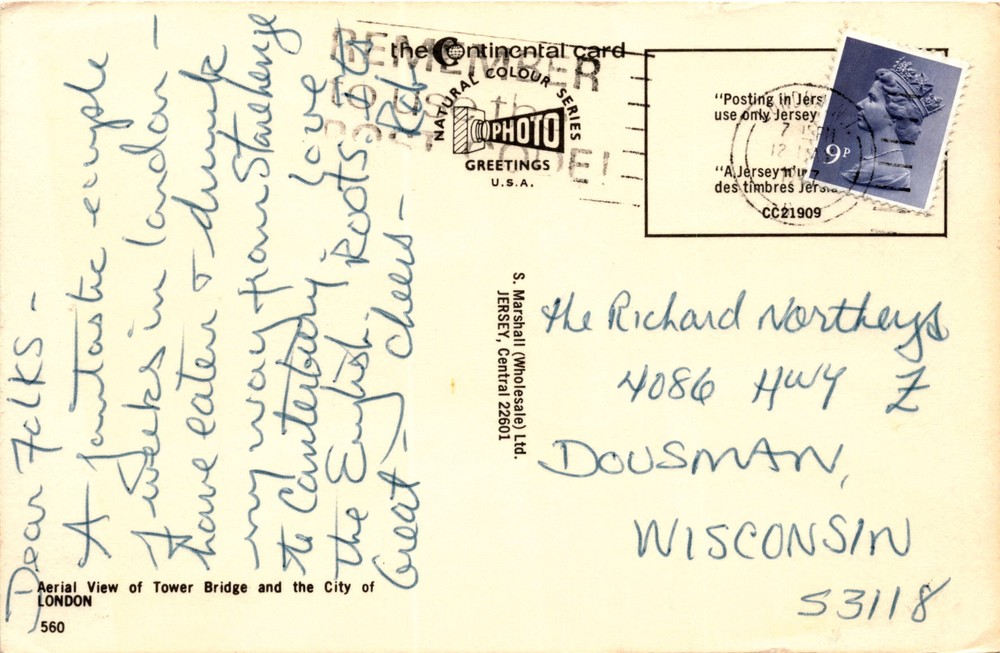 Dear Folks -
A fantastic couple
of weeks in London -
I have eaten & drunk
my way from Stonehenge
to Canterbury. Love
the English Roots. It's
Great - cheers - Rob
the Continental card
NATURAL COLOUR SERIES
PHOTO
GREETINGS
U.S.A.
REMEMBER
to use the
POST CODE!
"Posting in Jers
use only Jersey
"A Jersey n'u
des timbres Jersi
CC21909
9P
S. Marshall (Wholesale) Ltd.
JERSEY, Central 22601
the Richard Northeys
4086 HWY Z
DOUSMAN,
WISCONSIN
53118
Aerial View of Tower Bridge and the City of
LONDON
560